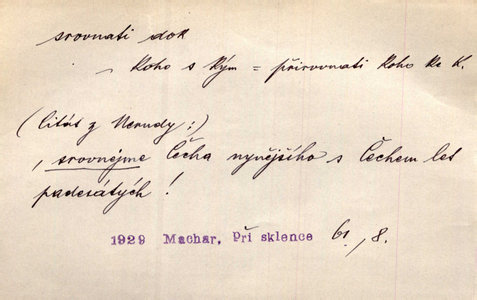 srovnati dok
~ koho s kým = přirovnati koho ke k.
(Citát z Nerudy:)
, srovnejme Čecha nynějšího s Čechem let
padesátých!
1929 Machar, Při sklence 61, 8.